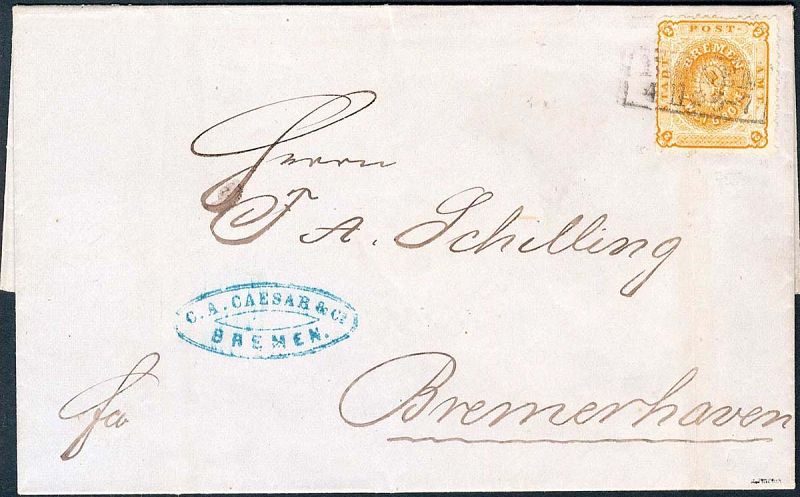 POST-
STADT
AMT
BREMEN
Herrn
F. A. Schilling
C. A. CAESAR & Co
BREMEN.
fco
Bremerhaven